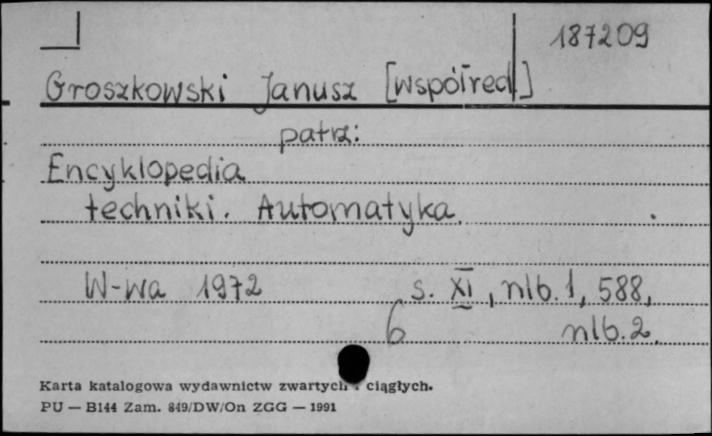 187209
Groszkowski Janusz [współred.]
patrz:
Encyklopedia
techniki. Automatyka.
W-wa 1972 s. XI, nlb. 1, 588,
6 nlb. 2.
Karta katalogowa wydawnictw zwartych i ciągłych.
PU — B144 Zam. 849/DW/On ZGG — 1991